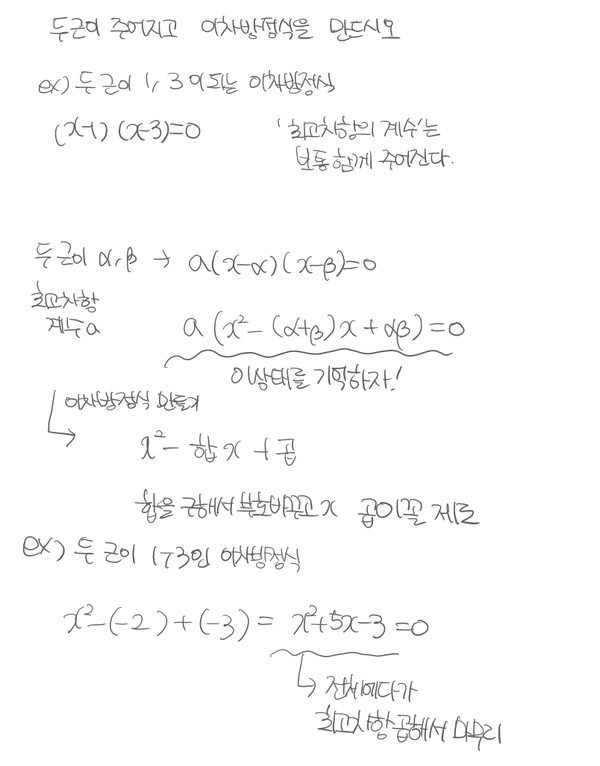 두근이 주어지고 이차방정식을 만드시오
ex) 두 근이 1, 3 이되는 이차방정식
(x-1) (x-3)=0
'최고차항의 계수'는
보통 함께 주어진다.
두 근이 α, β → a(x-α)(x-β)=0
최고차항
계수 a
a (x²-(α+β)x+αβ)=0
이상태를 기억하자!
이차방정식 만들기
x²- 합x +곱
합을 구해서 부호바꾸고 x 곱이꼴 제로
ex) 두 근이 인 이차방정식
x²-(-2)+(-3) = x²+5x-3=0
전체에다가
최고차항 곱해서 마무리